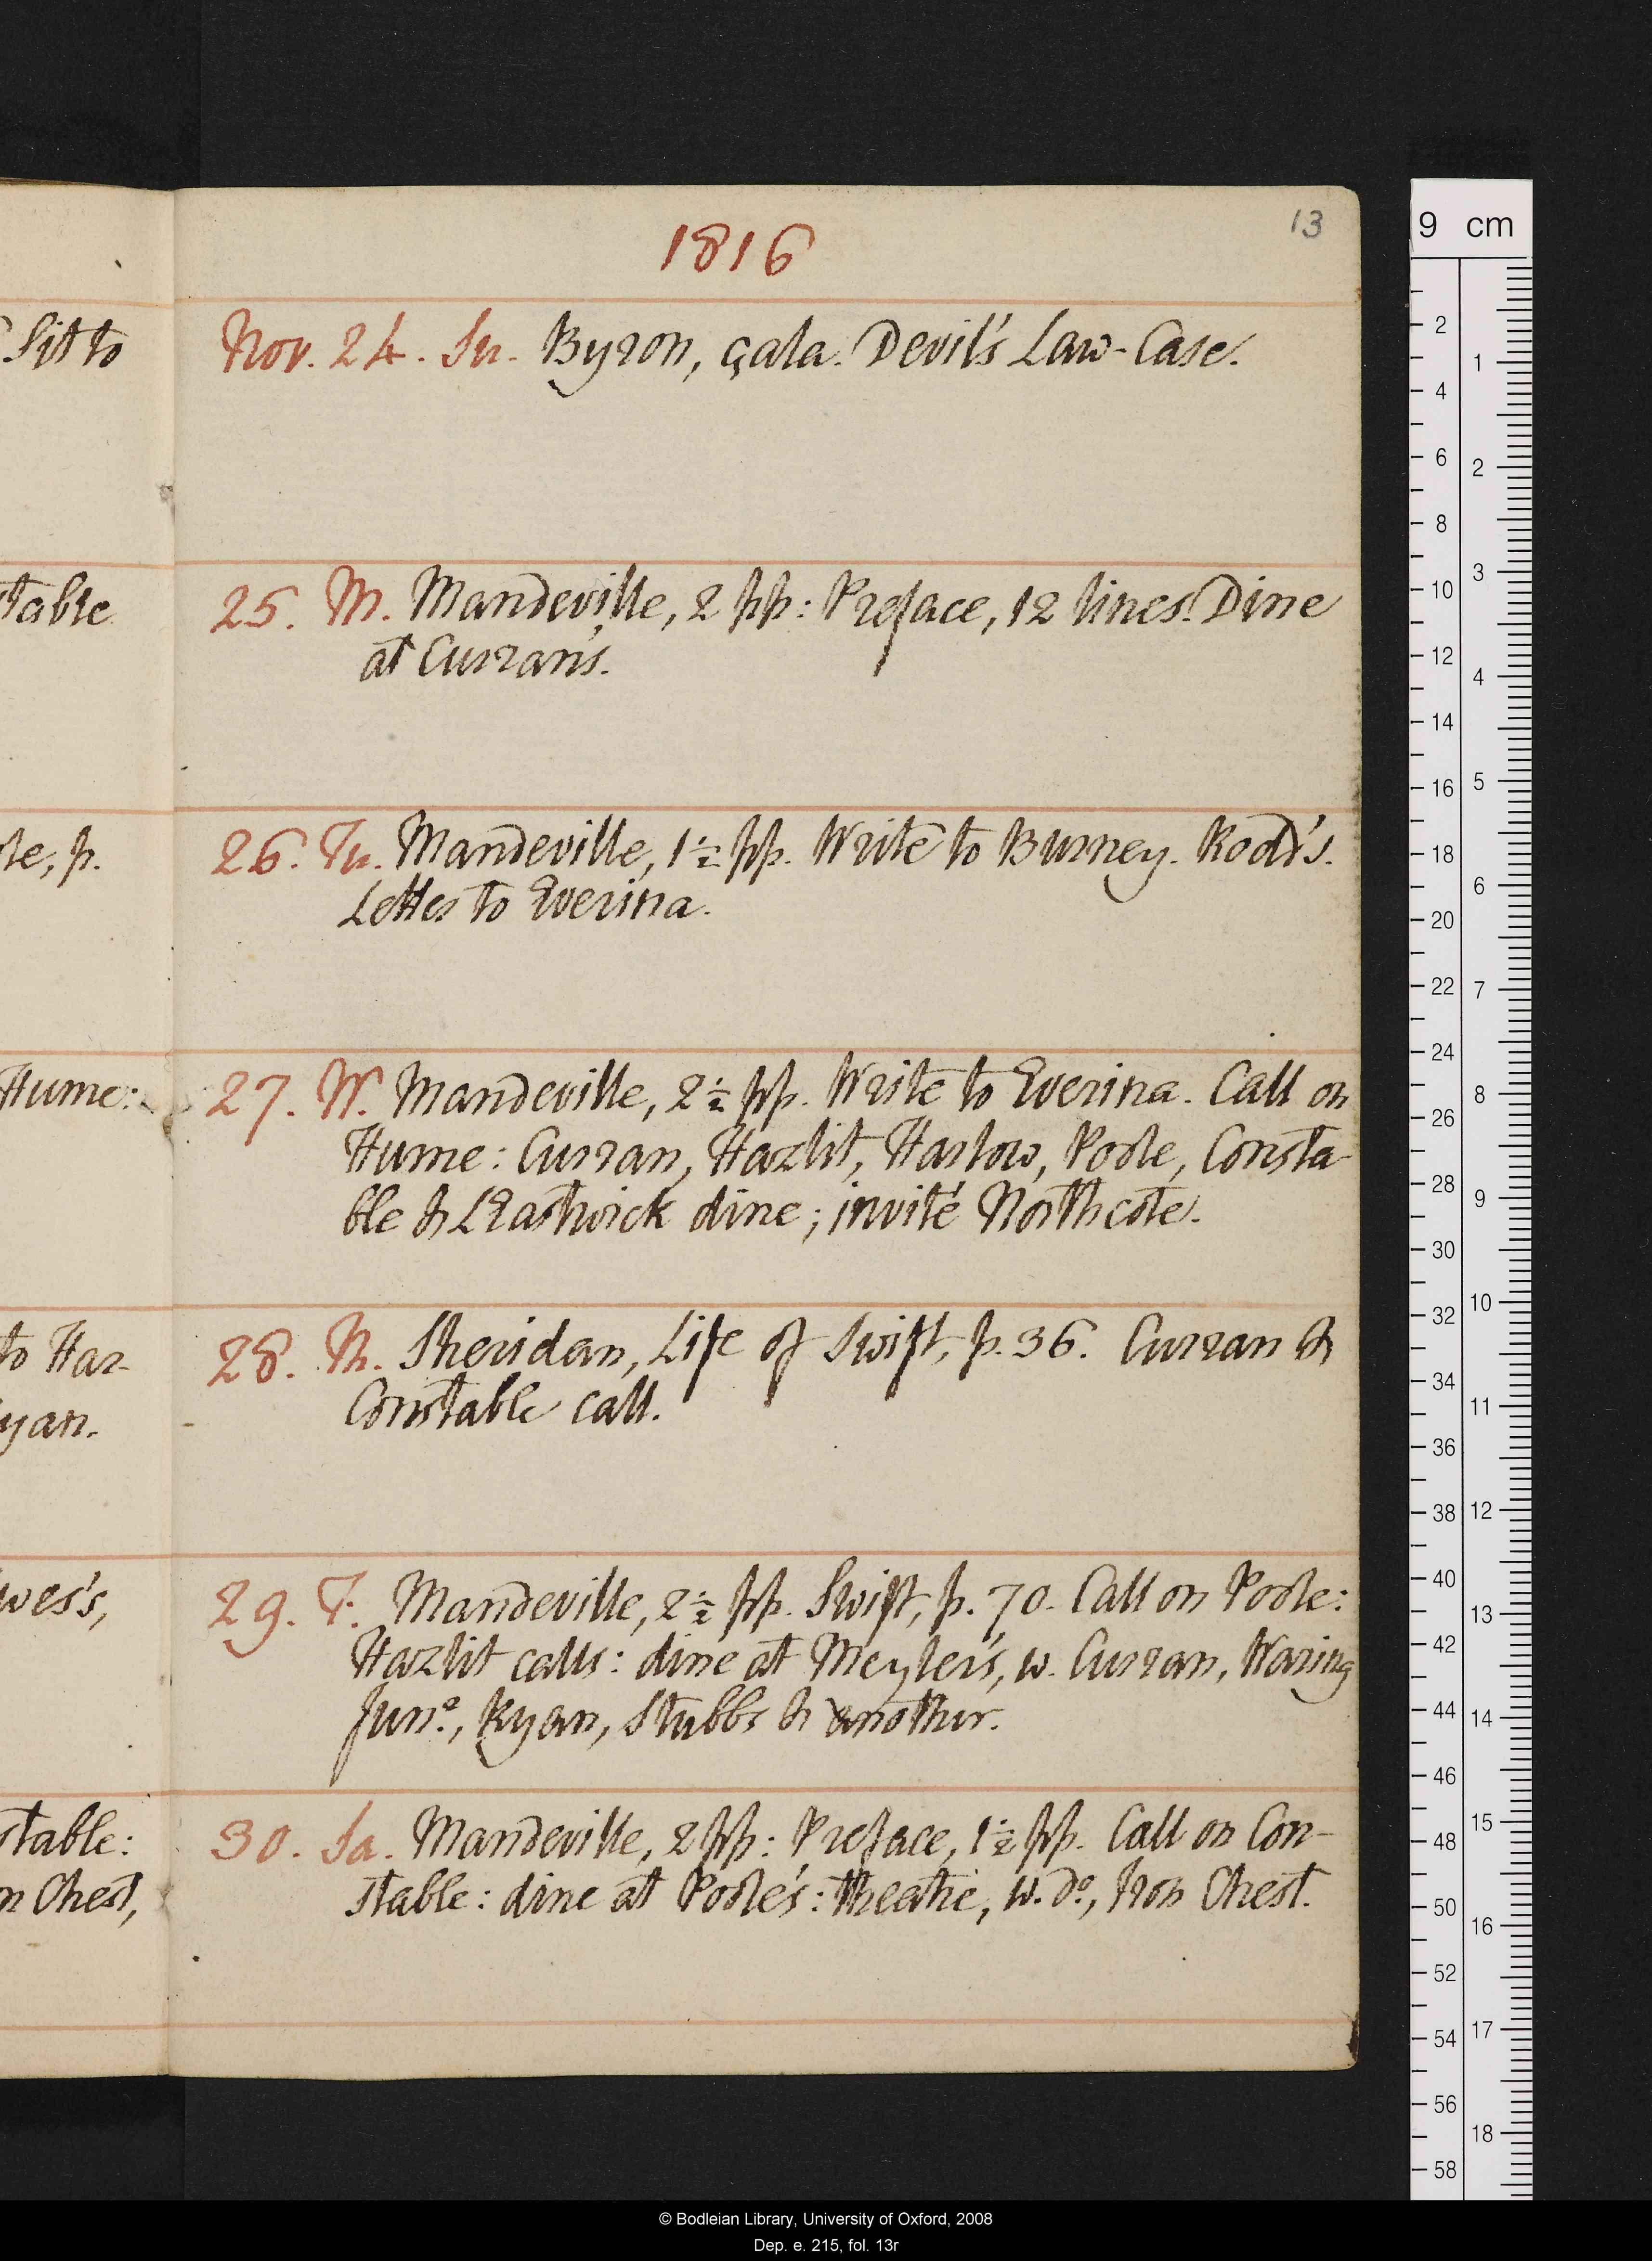 13
1816
Sit to
Nov. 24. Su. Byron, çala. Devil's Law-Case.
table
25. M. Mandeville, 2 pp: Preface, 12 lines. Dine
at Curran's.
le, p.
26. Tu. Mandeville, 1½ pp. Write to Burney. Rodd's.
Letter to Everina.
Hume:
27. W. Mandeville, 2½ pp. Write to Everina. Call on
Hume: Curran, Hazlit, Harlow, Poole, Consta-
ble & L Eastwick dine; invité Northcote.
to Har-
yan.
28. Th. Sheridan, Life of Swift, p. 36. Curran &
Constable call.
wes's,
29. F. Mandeville, 2½ pp. Swift, p. 70. Call on Poole:
Hazlit calls: dine at Meyler's, w. Curran, Waring
Junr., Ryan, Stubbs & another.
stable:
n Chest,
30. Sa. Mandeville, 2 pp: Preface, 1½ pp. Call on Con-
stable: dine at Poole's: theatre, w. do, Iron Chest.
9 cm
2
4
6
8
10
12
14
16
18
20
22
24
26
28
30
32
34
36
38
40
42
44
46
48
50
52
54
56
58
1
2
3
4
5
6
7
8
9
10
11
12
13
14
15
16
17
18
© Bodleian Library, University of Oxford, 2008
Dep. e. 215, fol. 13r